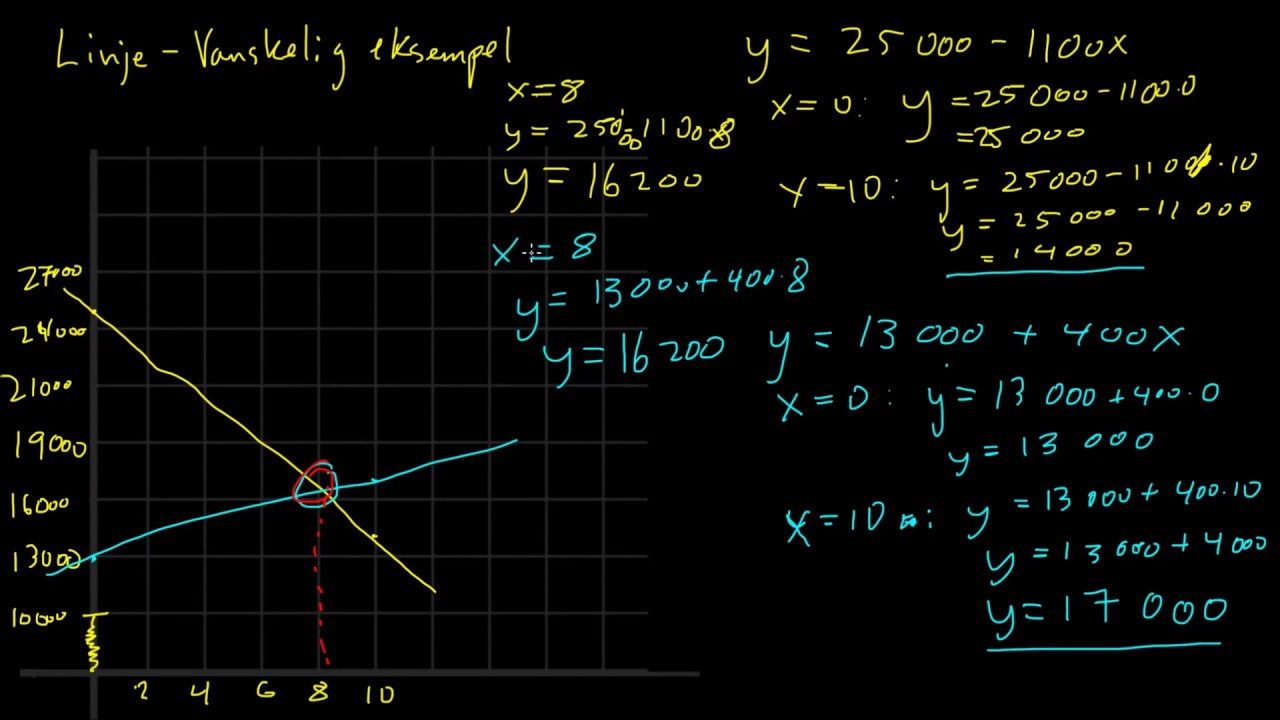 Linje - Vanskelig eksempel
x = 8
y = 25000 - 1100·8
y = 16 200
x = 8
y = 13000 + 400·8
y = 16 200
y = 25 000 - 1100x
x = 0: y = 25 000 - 1100·0
= 25 000
x = 10: y = 25000 - 1100·10
y = 25 000 - 11 000
= 14 000
y = 13 000 + 400x
x = 0: y = 13 000 + 400·0
y = 13 000
x = 10: y = 13 000 + 400·10
y = 13 000 + 4000
y = 17 000
27000
24000
21000
19000
16000
13000
10000
2 4 6 8 10